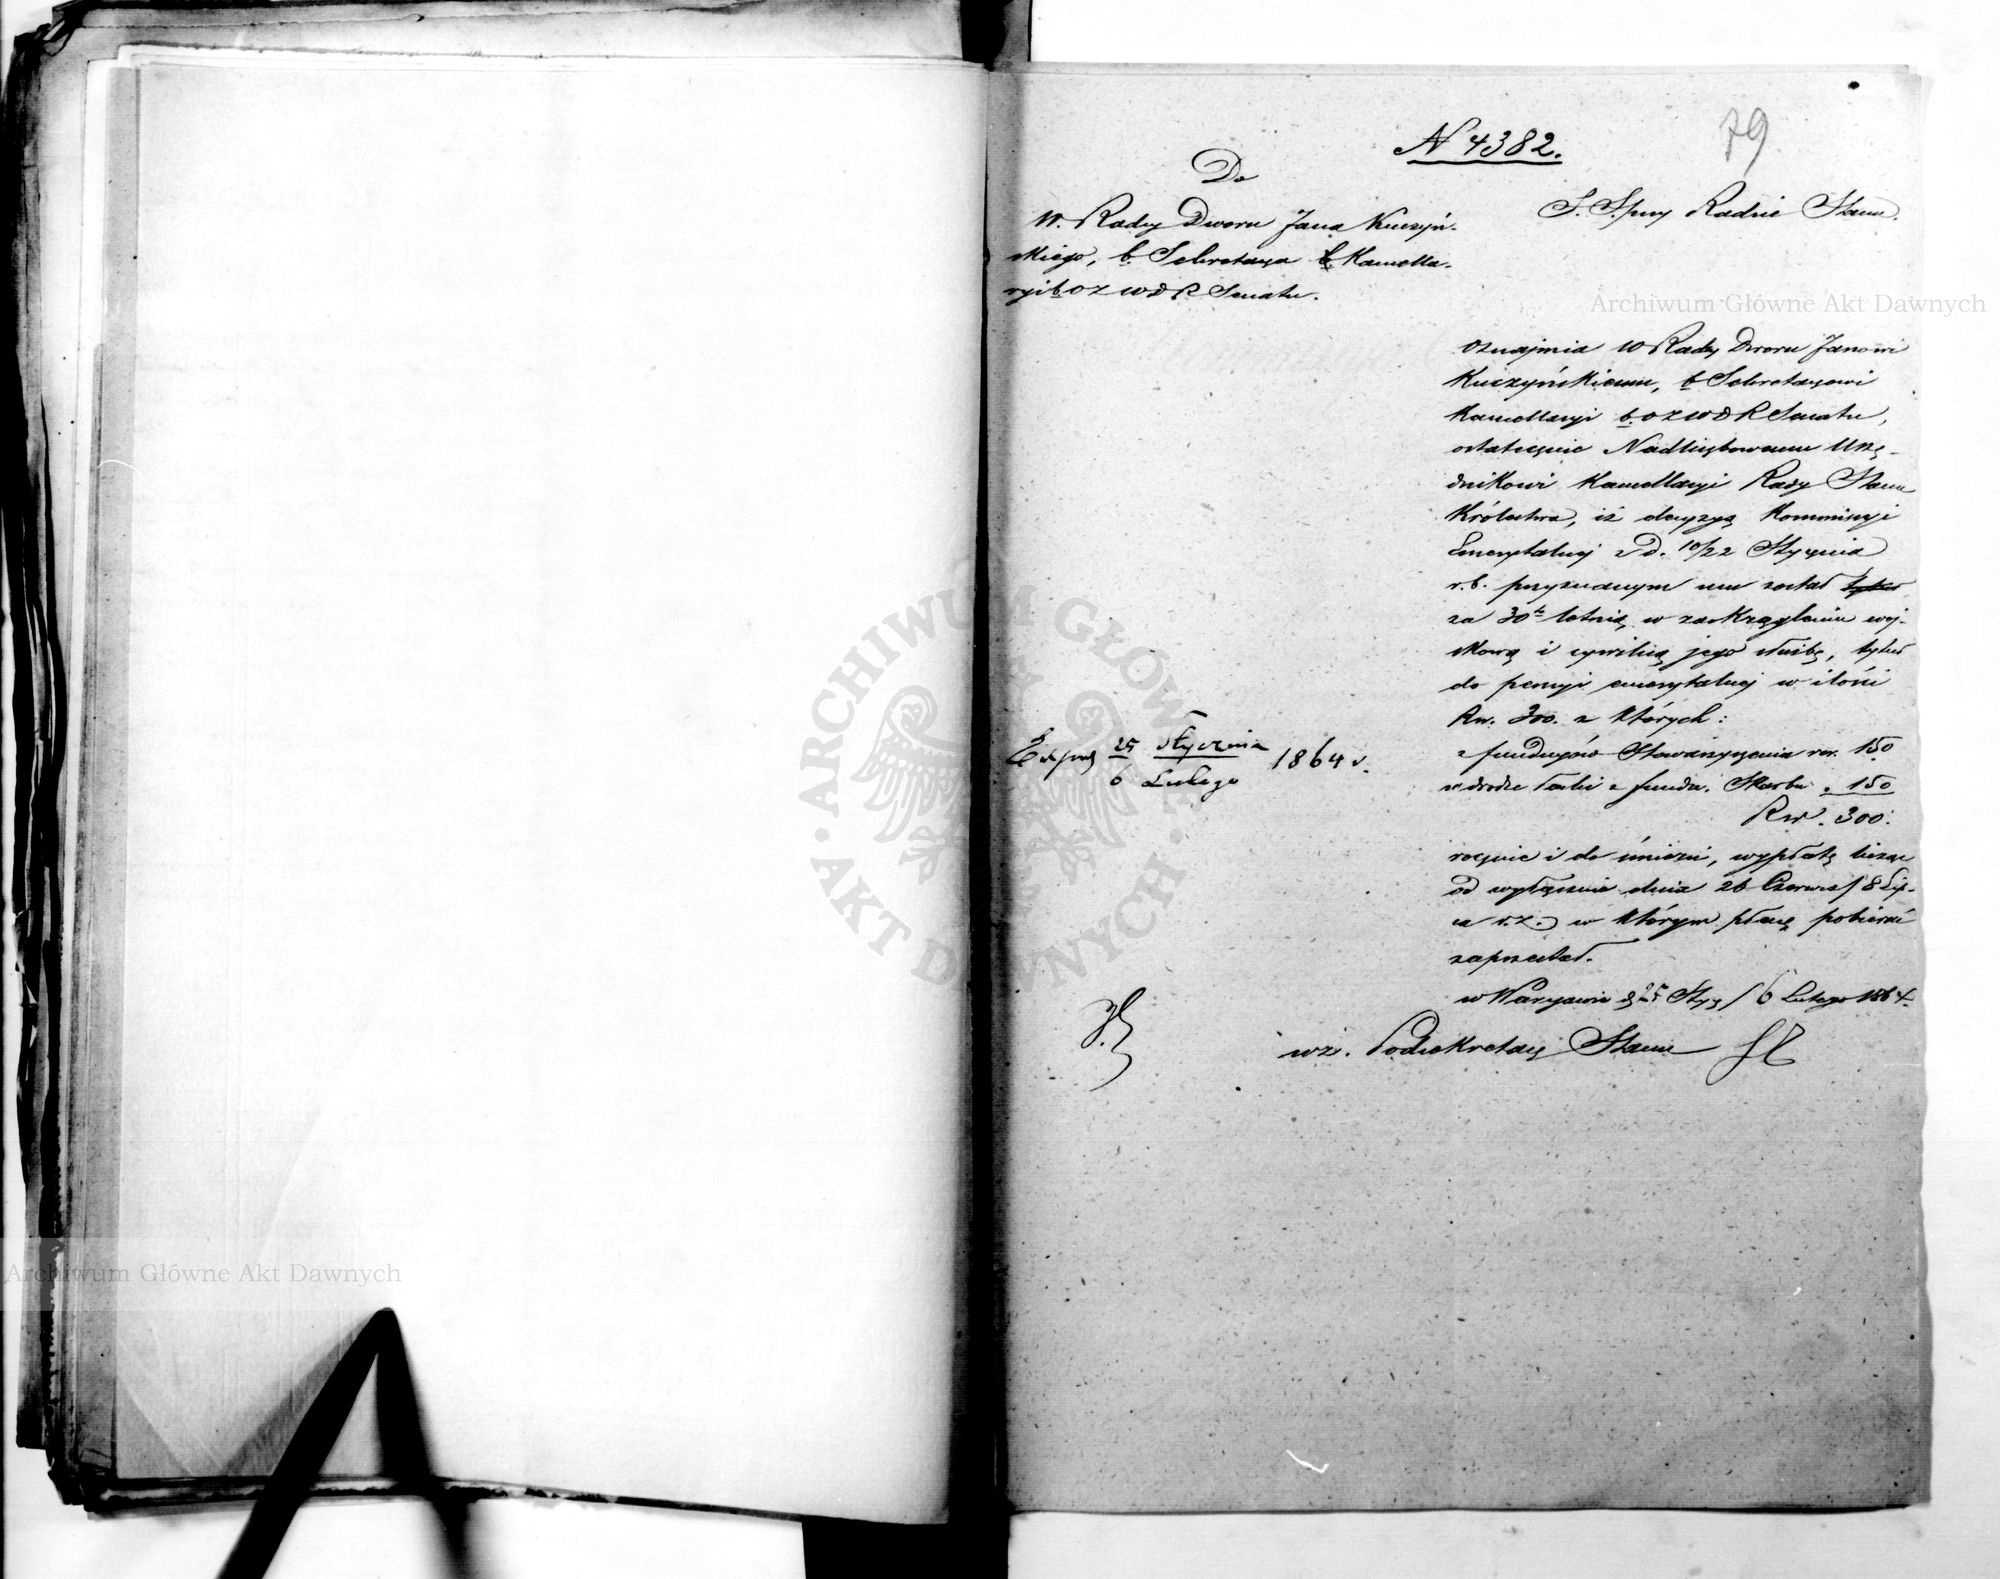 79
N 4382.
Do
W. Radcy Dworu Jana Kuczyń-
skiego, b. Sekretarza Kancella-
ryi b. O Z W D R Senatu.
S. S. przy Radzie Stanu.
oznajmia W Radcy Dworu Janowi
Kuczyńskiemu, b Sekretarzowi
Kancellaryi b. O Z W D R Senatu,
ostatecznie Nadliczbowemu Urzę-
dnikowi Kancellaryi Rady Stanu
Królestwa, iż decyzyą Kommissyi
Emerytalnej z d. 10/22 Stycznia
r.b. przyznanym mu został tytuł
za 30to letnią, w zaokrągleniu woj-
skową i cywilną jego służbę, tytuł
do pensyi emerytalnej w ilości
Rsr. 300. z których:
z funduszów Stowarzyszenia rsr. 150
w drodze łaski z fundu. Skarbu " 150
Rsr. 300.
rocznie i do śmierci, wypłatę licząc
od wyłącznie dnia 26 Czerwca/8 Lip-
ca r.z. w którym płacę pobierać
zaprzestał.
w Warszawie d 25 Stycz/6 Lutego 1864.
wz. Podsekretarz Stanu
Exped 25 Stycznia
6 Lutego 1864 r.
Archiwum Główne Akt Dawnych
ARCHIWUM GŁÓWNE AKT DAWNYCH
Archiwum Główne Akt Dawnych